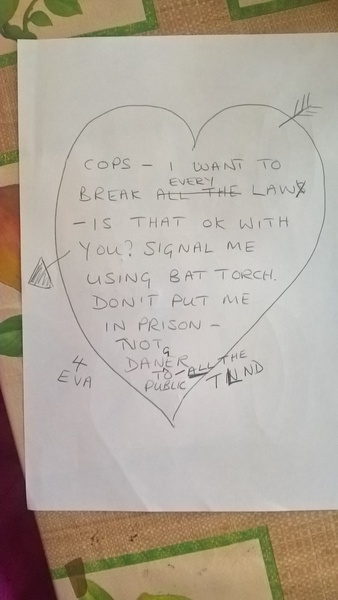 COPS - I WANT TO
EVERY
BREAK ALL THE LAW
- IS THAT OK WITH
YOU? SIGNAL ME
USING BAT TORCH.
DON'T PUT ME
IN PRISON -
NOT A
DANGER
TO - ALL THE
PUBLIC
4
EVA